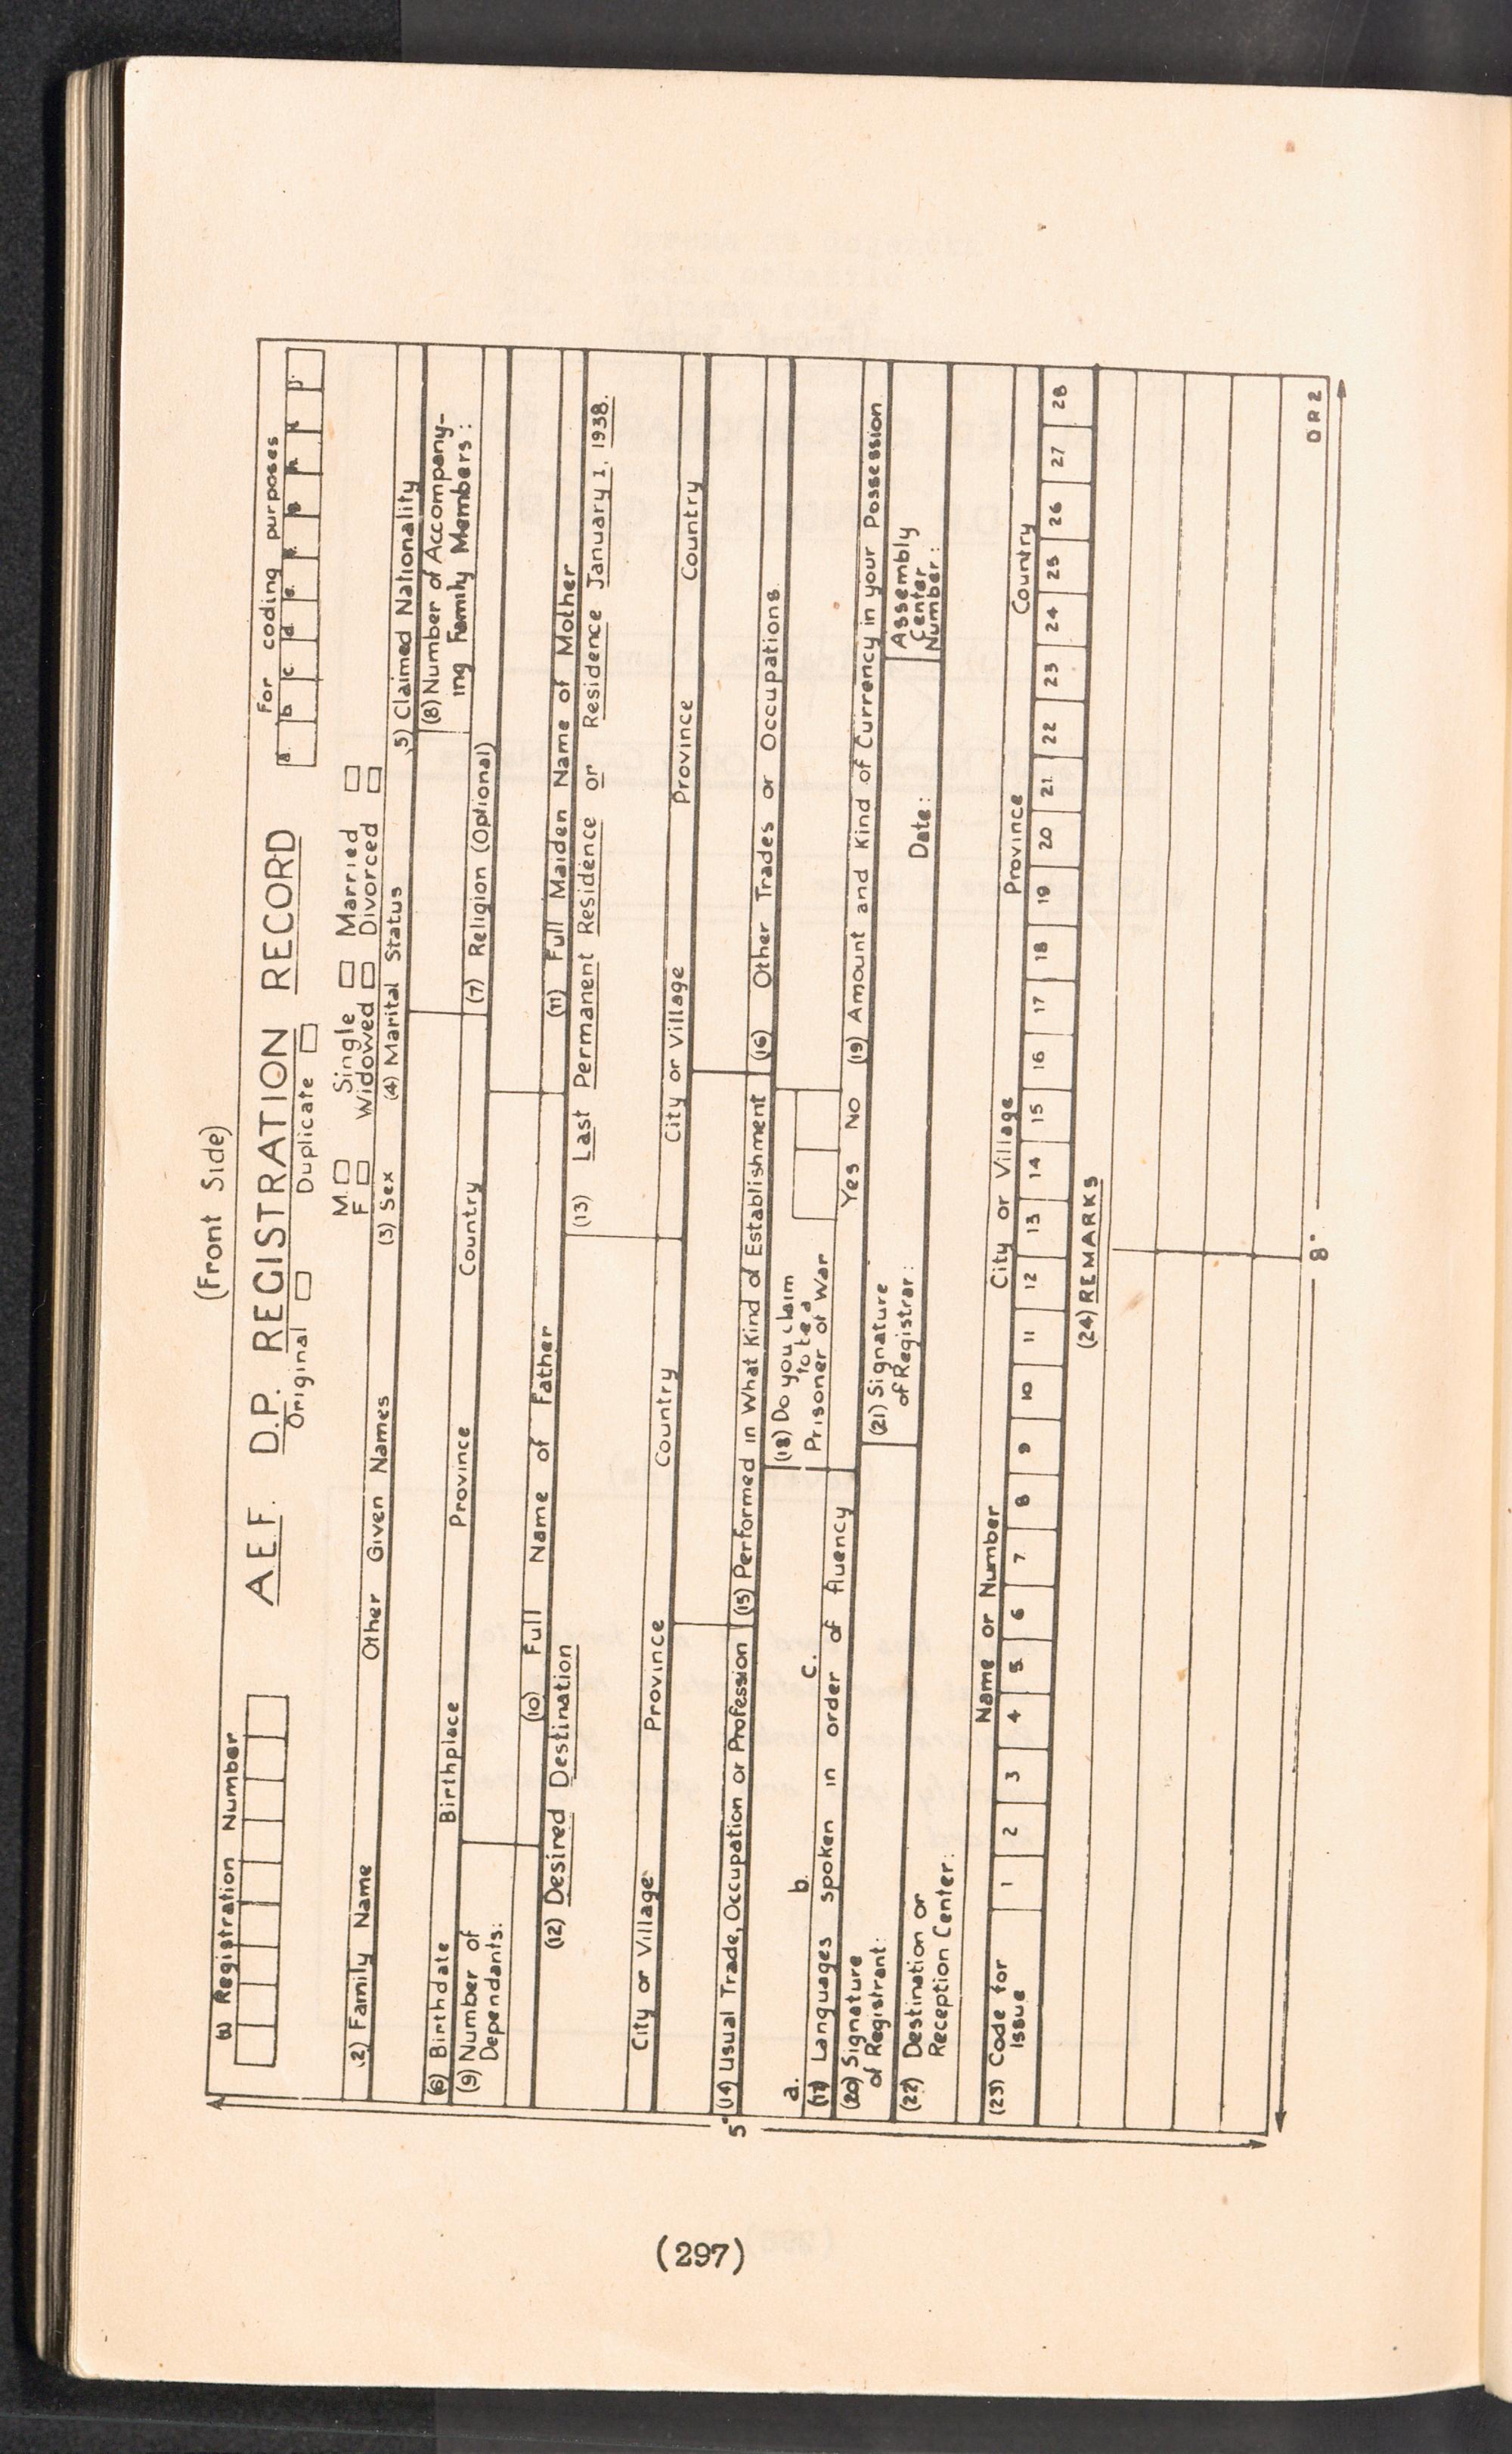 (Front Side)
(1) Registration Number
A.E.F. D.P. REGISTRATION RECORD
For coding purposes
a. b c d e. f. g h i j.
Original □ Duplicate □
M. □ Single □ Married □
F □ Widowed □ Divorced □
(2) Family Name Other Given Names (3) Sex (4) Marital Status (5) Claimed Nationality
(6) Birthdate Birthplace Province Country
(7) Religion (Optional)
(8) Number of Accompany-
ing Family Members:
(9) Number of
Dependants:
(10) Full Name of Father
(11) Full Maiden Name of Mother
(12) Desired Destination
(13) Last Permanent Residence or Residence January 1, 1938.
City or Village Province Country City or Village Province Country
(14) Usual Trade, Occupation or Profession (15) Performed in What Kind of Establishment (16) Other Trades or Occupations
a. b. c.
(17) Languages spoken in order of fluency
(18) Do you claim
to be a
Prisoner of War
Yes No
(19) Amount and Kind of Currency in your Possession
(20) Signature
of Registrant:
(21) Signature
of Registrar:
Date:
Assembly
Center
Number:
(22) Destination or
Reception Center:
Name or Number City or Village Province Country
(23) Code for
Issue
1 2 3 4 5 6 7 8 9 10 11 12 13 14 15 16 17 18 19 20 21 22 23 24 25 26 27 28
(24) REMARKS
DR2
5"
8"
(297)